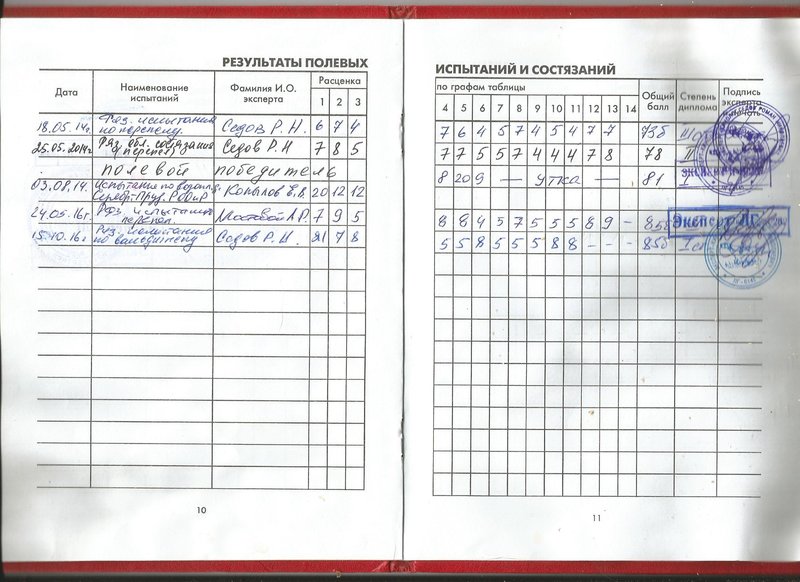 РЕЗУЛЬТАТЫ ПОЛЕВЫХ
Дата
Наименование испытаний
Фамилия И.О. эксперта
Расценка
1 2 3
18.05.14г. Ряз. испытания 6 7 4
по перепелу. Седов Р.Н.
25.05.2014г. Ряз. обл. состязания Седов Р.Н 7 8 5
(перепел)
полевой победитель
03.08.14. Испытание по водопл. Копылов 20 12 12
24.05.16г. Ряз. испытания 7 9 5
перепел.
15.10.16г Ряз. испытания Седов Р.Н. 21 7 8
10
ИСПЫТАНИЙ И СОСТЯЗАНИЙ
по графам таблицы
Общий балл
Степень диплома
Подпись эксперта печать
4 5 6 7 8 9 10 11 12 13 14
7 6 4 5 7 4 5 4 7 7 73б
7 7 5 5 7 4 4 4 7 8 78 II
8 20 9 — утка — 81 I
8 8 4 5 7 5 5 5 8 9 – 85б
Эксперт
5 5 8 5 5 5 8 8 – – – 85б
11